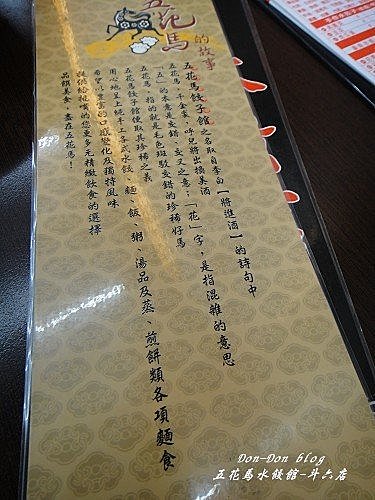 五花馬的故事
五花馬餃子館之名取自李白【將進酒】的詩句中
五花馬，千金裘，呼兒將出換美酒
「五」的本意是交錯、交叉之意；「花」字，是指混雜的意思
五花馬，指的就是毛色斑駁交錯的珍稀好馬
五花馬餃子館便取其珍稀之義
用心地呈上純手工各式水餃、麵、飯、粥、湯品及蒸、煎餅類各項麵食
希望以豐富的口感變化及獨特風味
提供給挑嘴的您更多元精緻飲食的選擇
品餌美食，盡在五花馬！
Don-Don blog
五花馬水餃館-斗六店